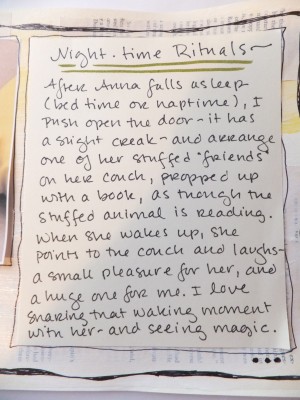 Night-time Rituals~
After Anna falls asleep
(bed time or naptime), I
push open the door-it has
a slight creak-and arrange
one of her stuffed "friends"
on her couch, propped up
with a book, as though the
stuffed animal is reading.
When she wakes up, she
points to the couch and laughs-
a small pleasure for her, and
a huge one for me. I love
sharing that waking moment
with her-and seeing magic.